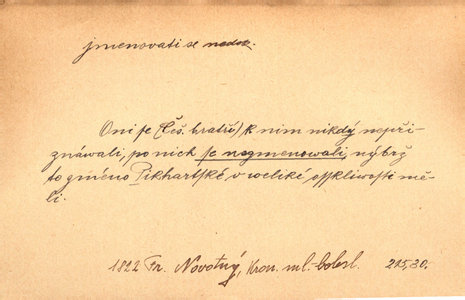 jmenovati se nedok.
Oni se (Češ. bratří) k nim nikdý nepři-
znáwali, po nich se negmenowali, nýbrž
to gméno Pikhartské w weliké osskliwosti mě-
li.
1822 Fr. Novotný, Kron. ml.-bolesl. 215,30.